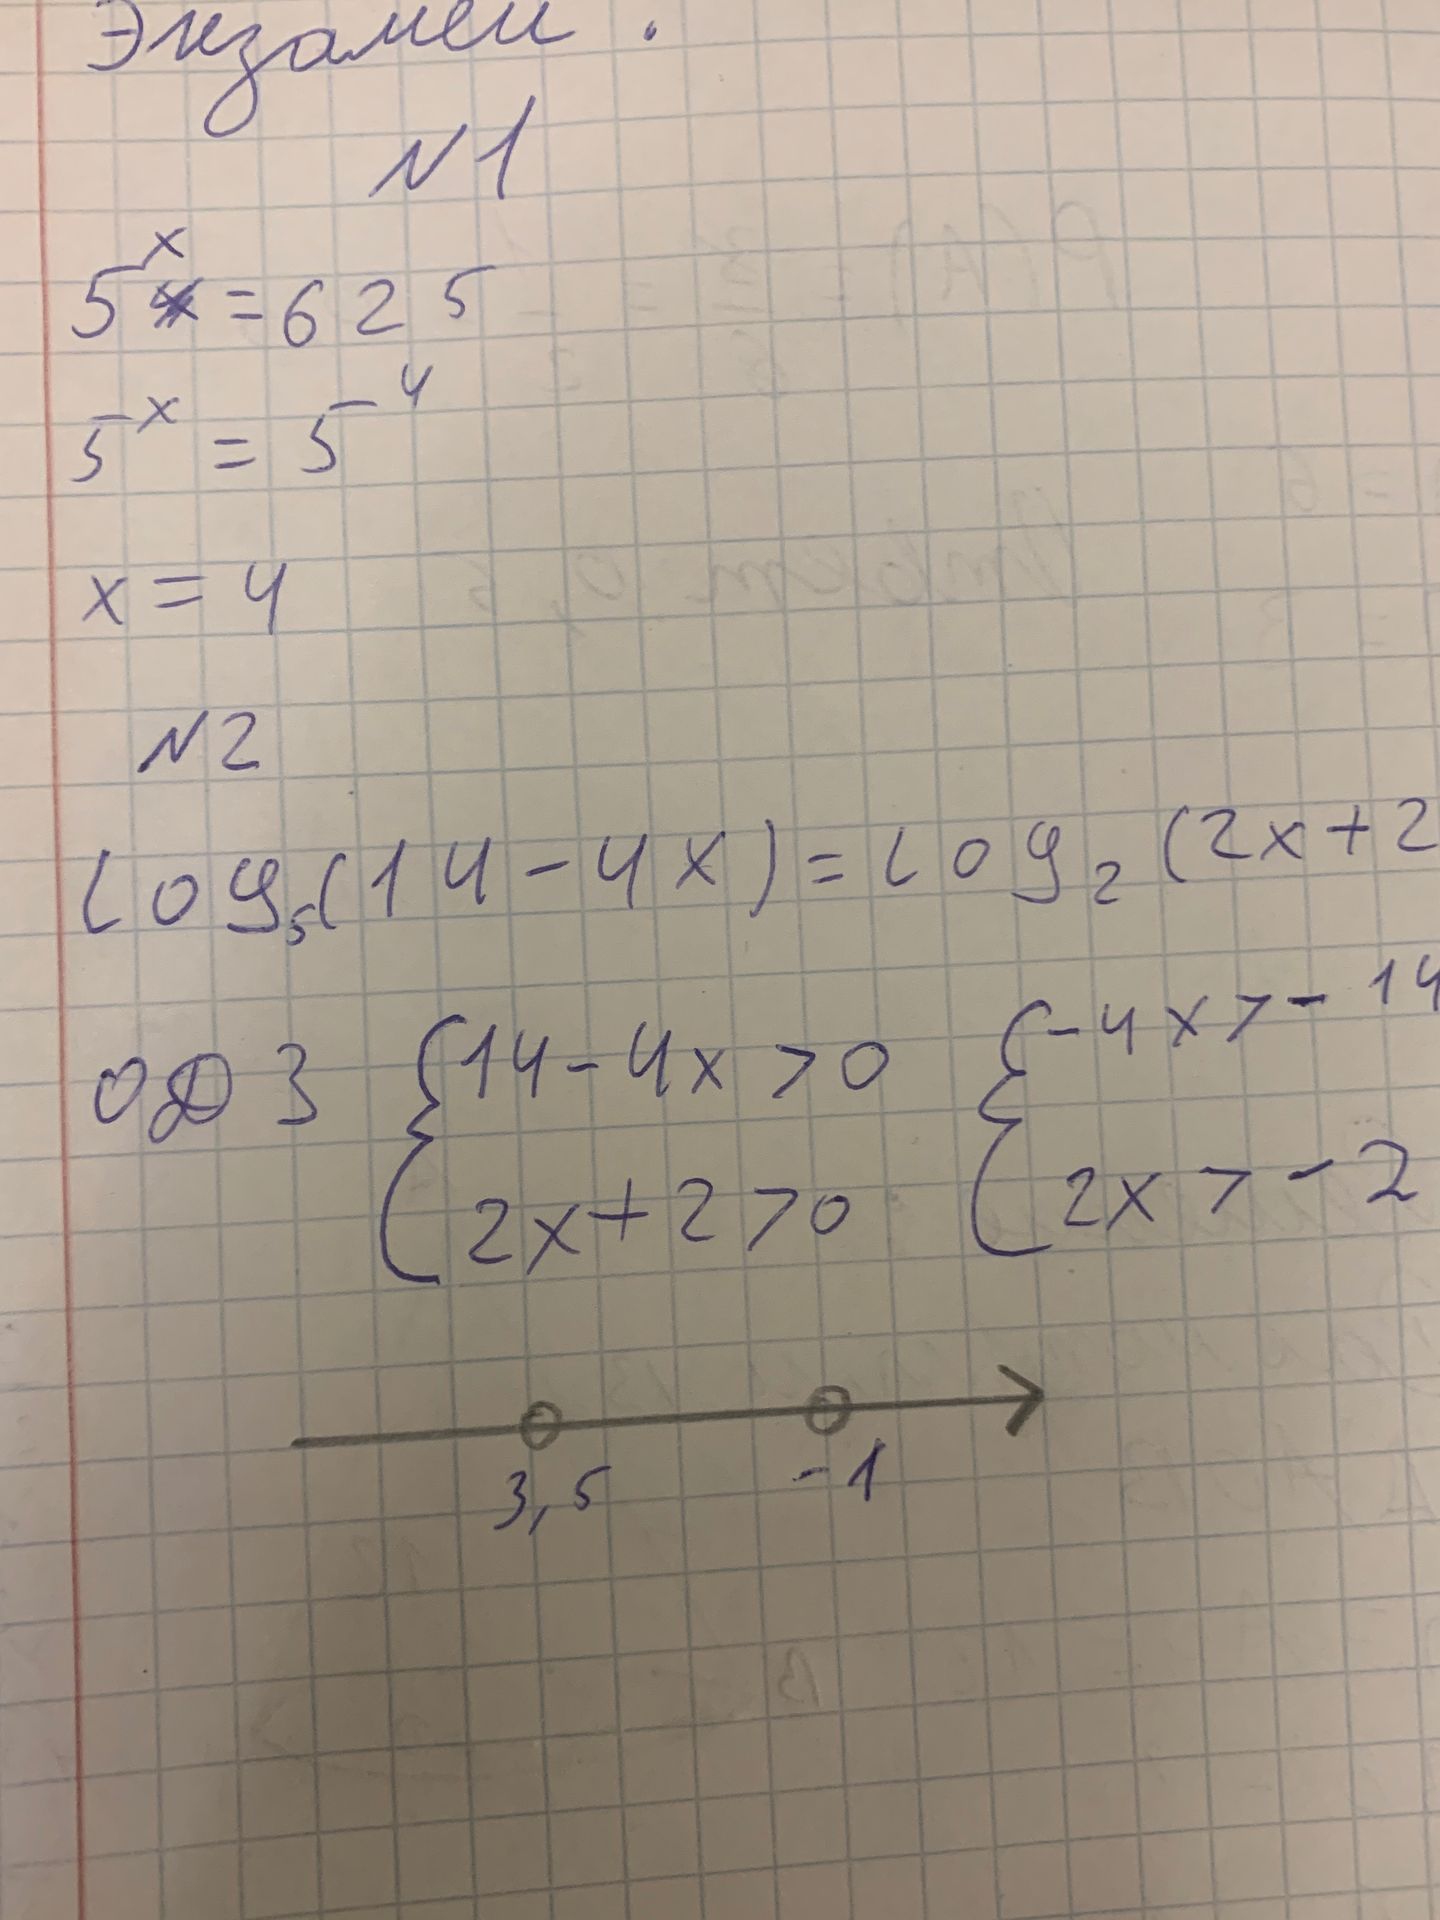 Экзамен.
N1
5^x = 625
5^x = 5^4
x = 4
N2
log₅(14-4x) = log₂(2x+2
ОДЗ {14-4x>0 {-4x>-14
{2x+2>0 {2x>-2
3,5 -1